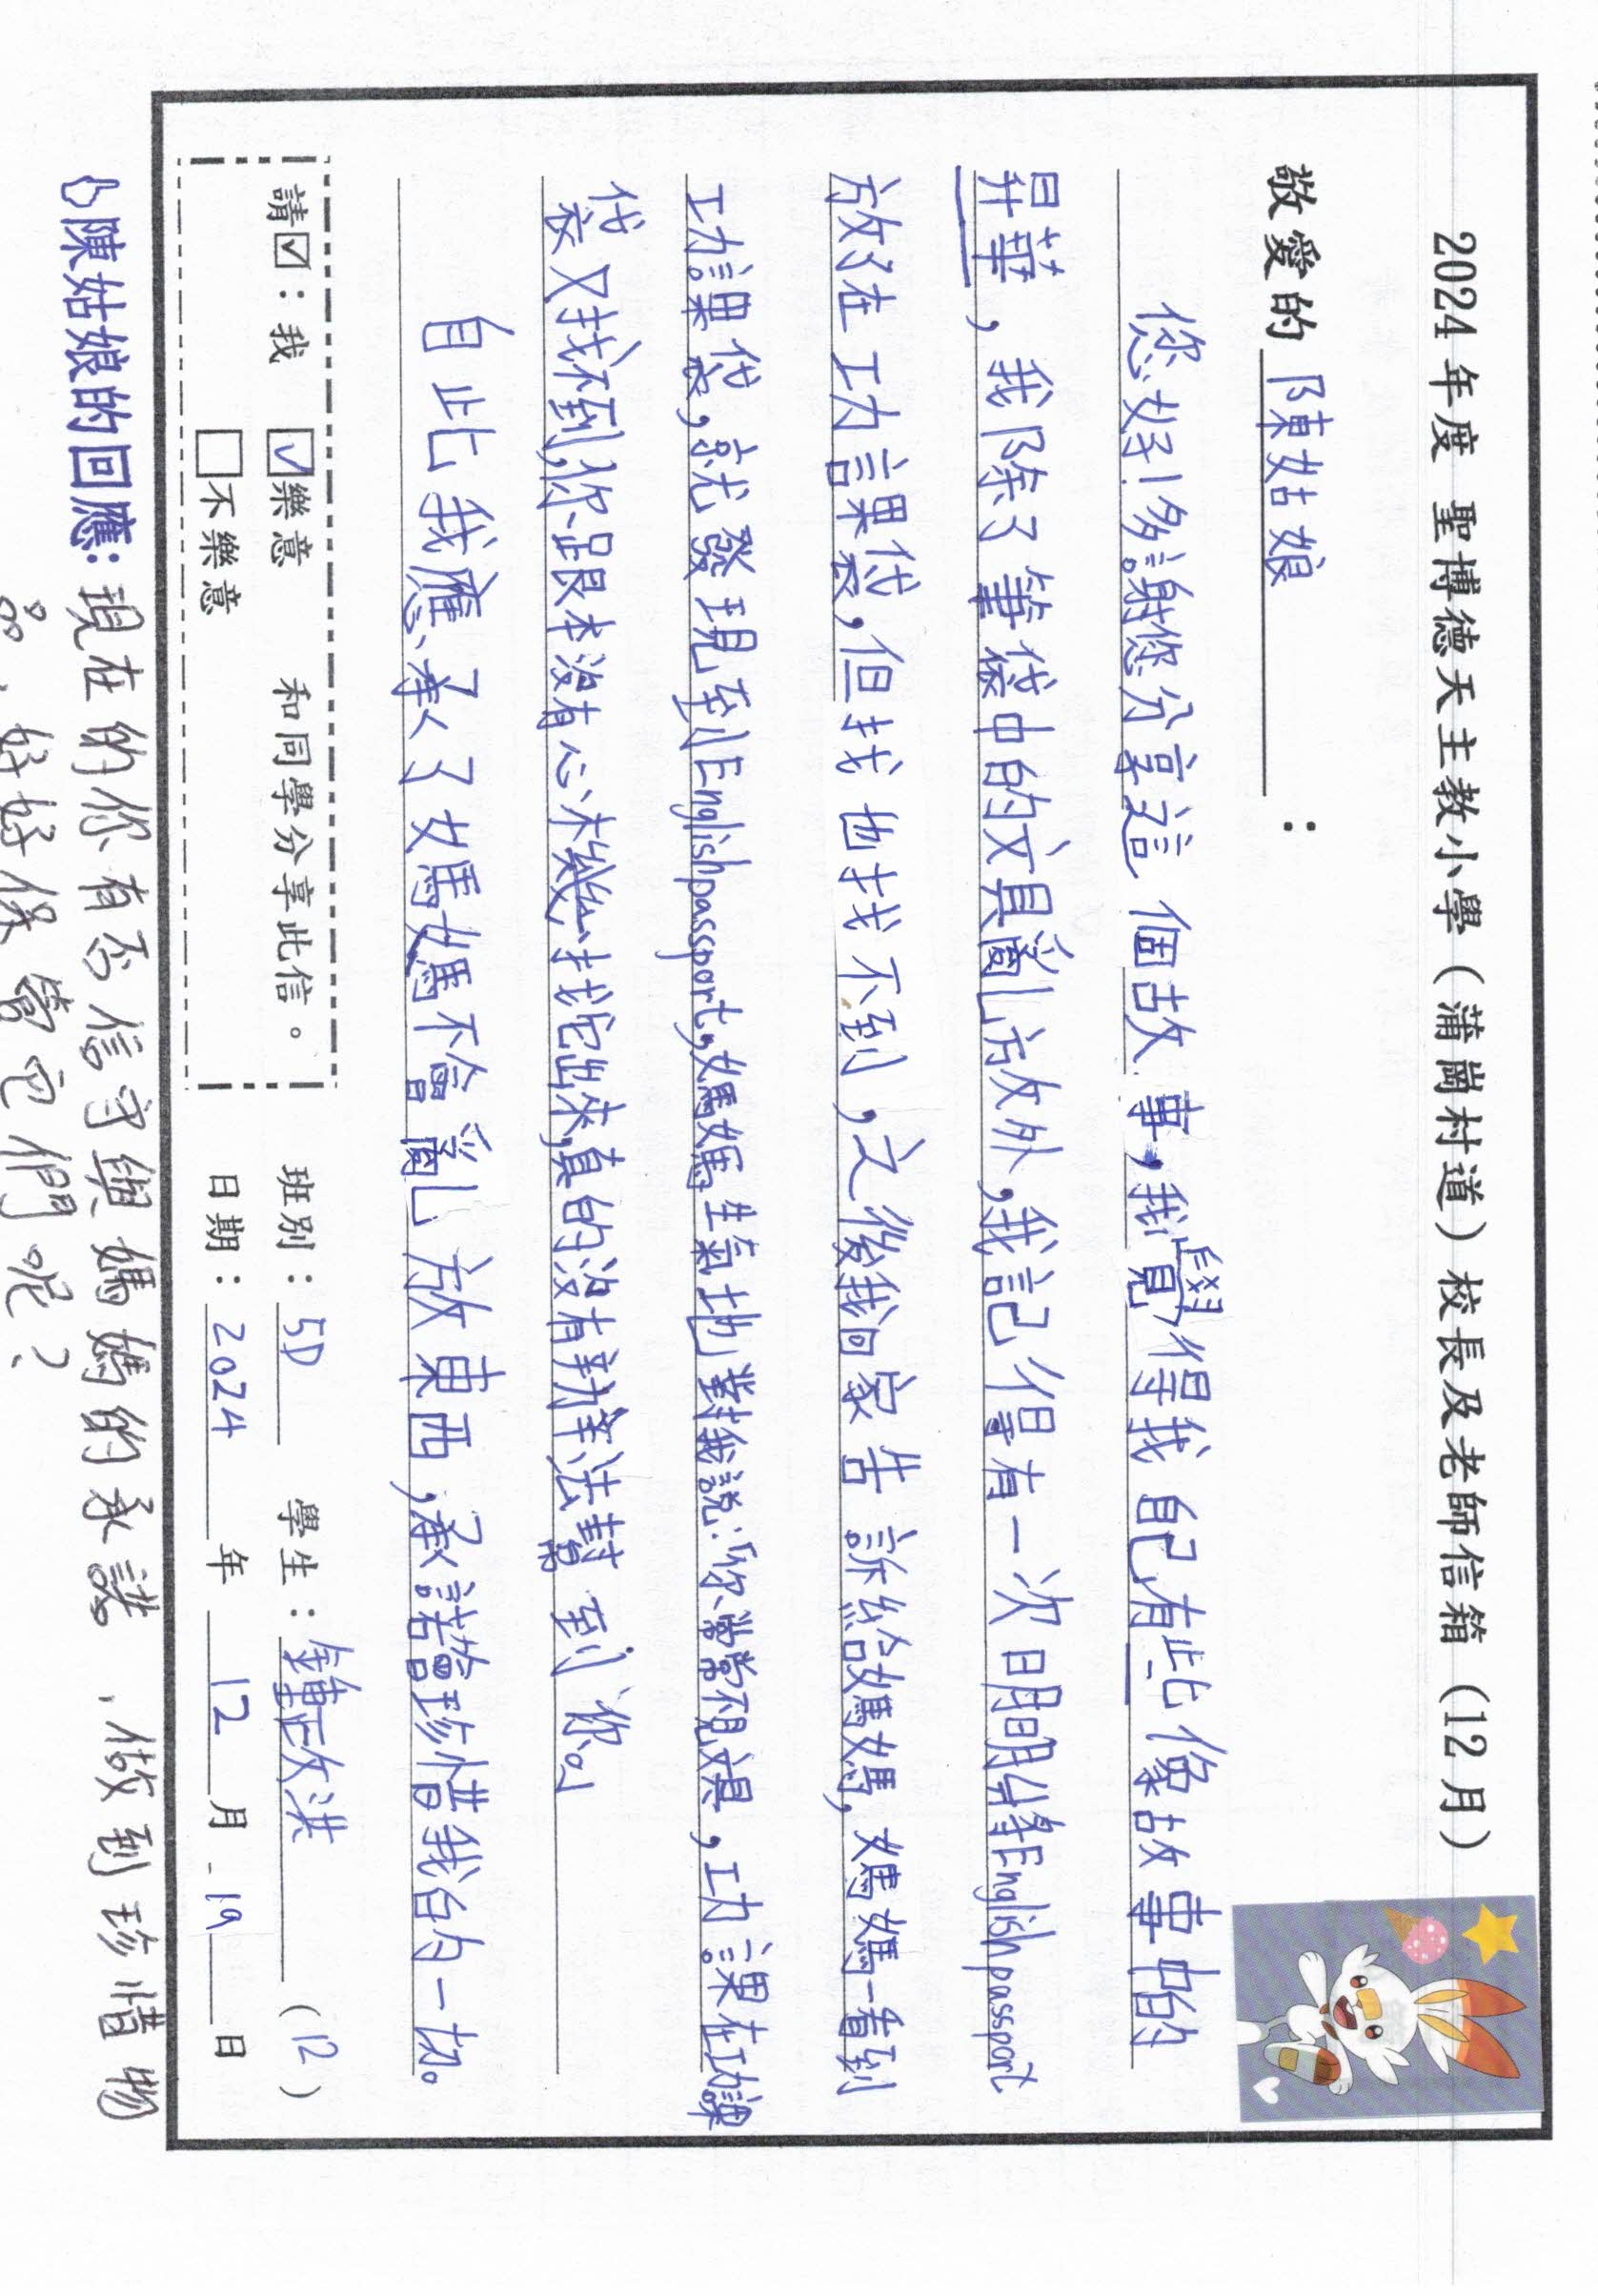 2024年度 聖博德天主教小學（蒲崗村道）校長及老師信箱（12月）
敬愛的 陳姑娘 ：
您好！多謝您分享這個故事，我覺得我自己有些像故事中的
昇華，我除了筆袋中的文具亂放外，我記得有一次日明明將English passport
放了在功課袋，但找也找不到，之後我回家告訴給媽媽，媽媽一看到
功課袋，就發現到English passport，媽媽生氣地對我說：「你常常不見文具，功課在功課
袋又找不到，你跟本沒有心機找它出來，真的沒有辦法幫到你。」
自此我應承了媽媽不會亂放東西，承諾會珍惜我的一切。
請☑：我 ☑樂意 和同學分享此信。
□不樂意
班別：5D 學生：鍾政洪 (12)
日期：2024年12月19日
陳姑娘的回應：現在的你有否信守與媽媽的承諾，做到珍惜物
品，好好保管它們呢？